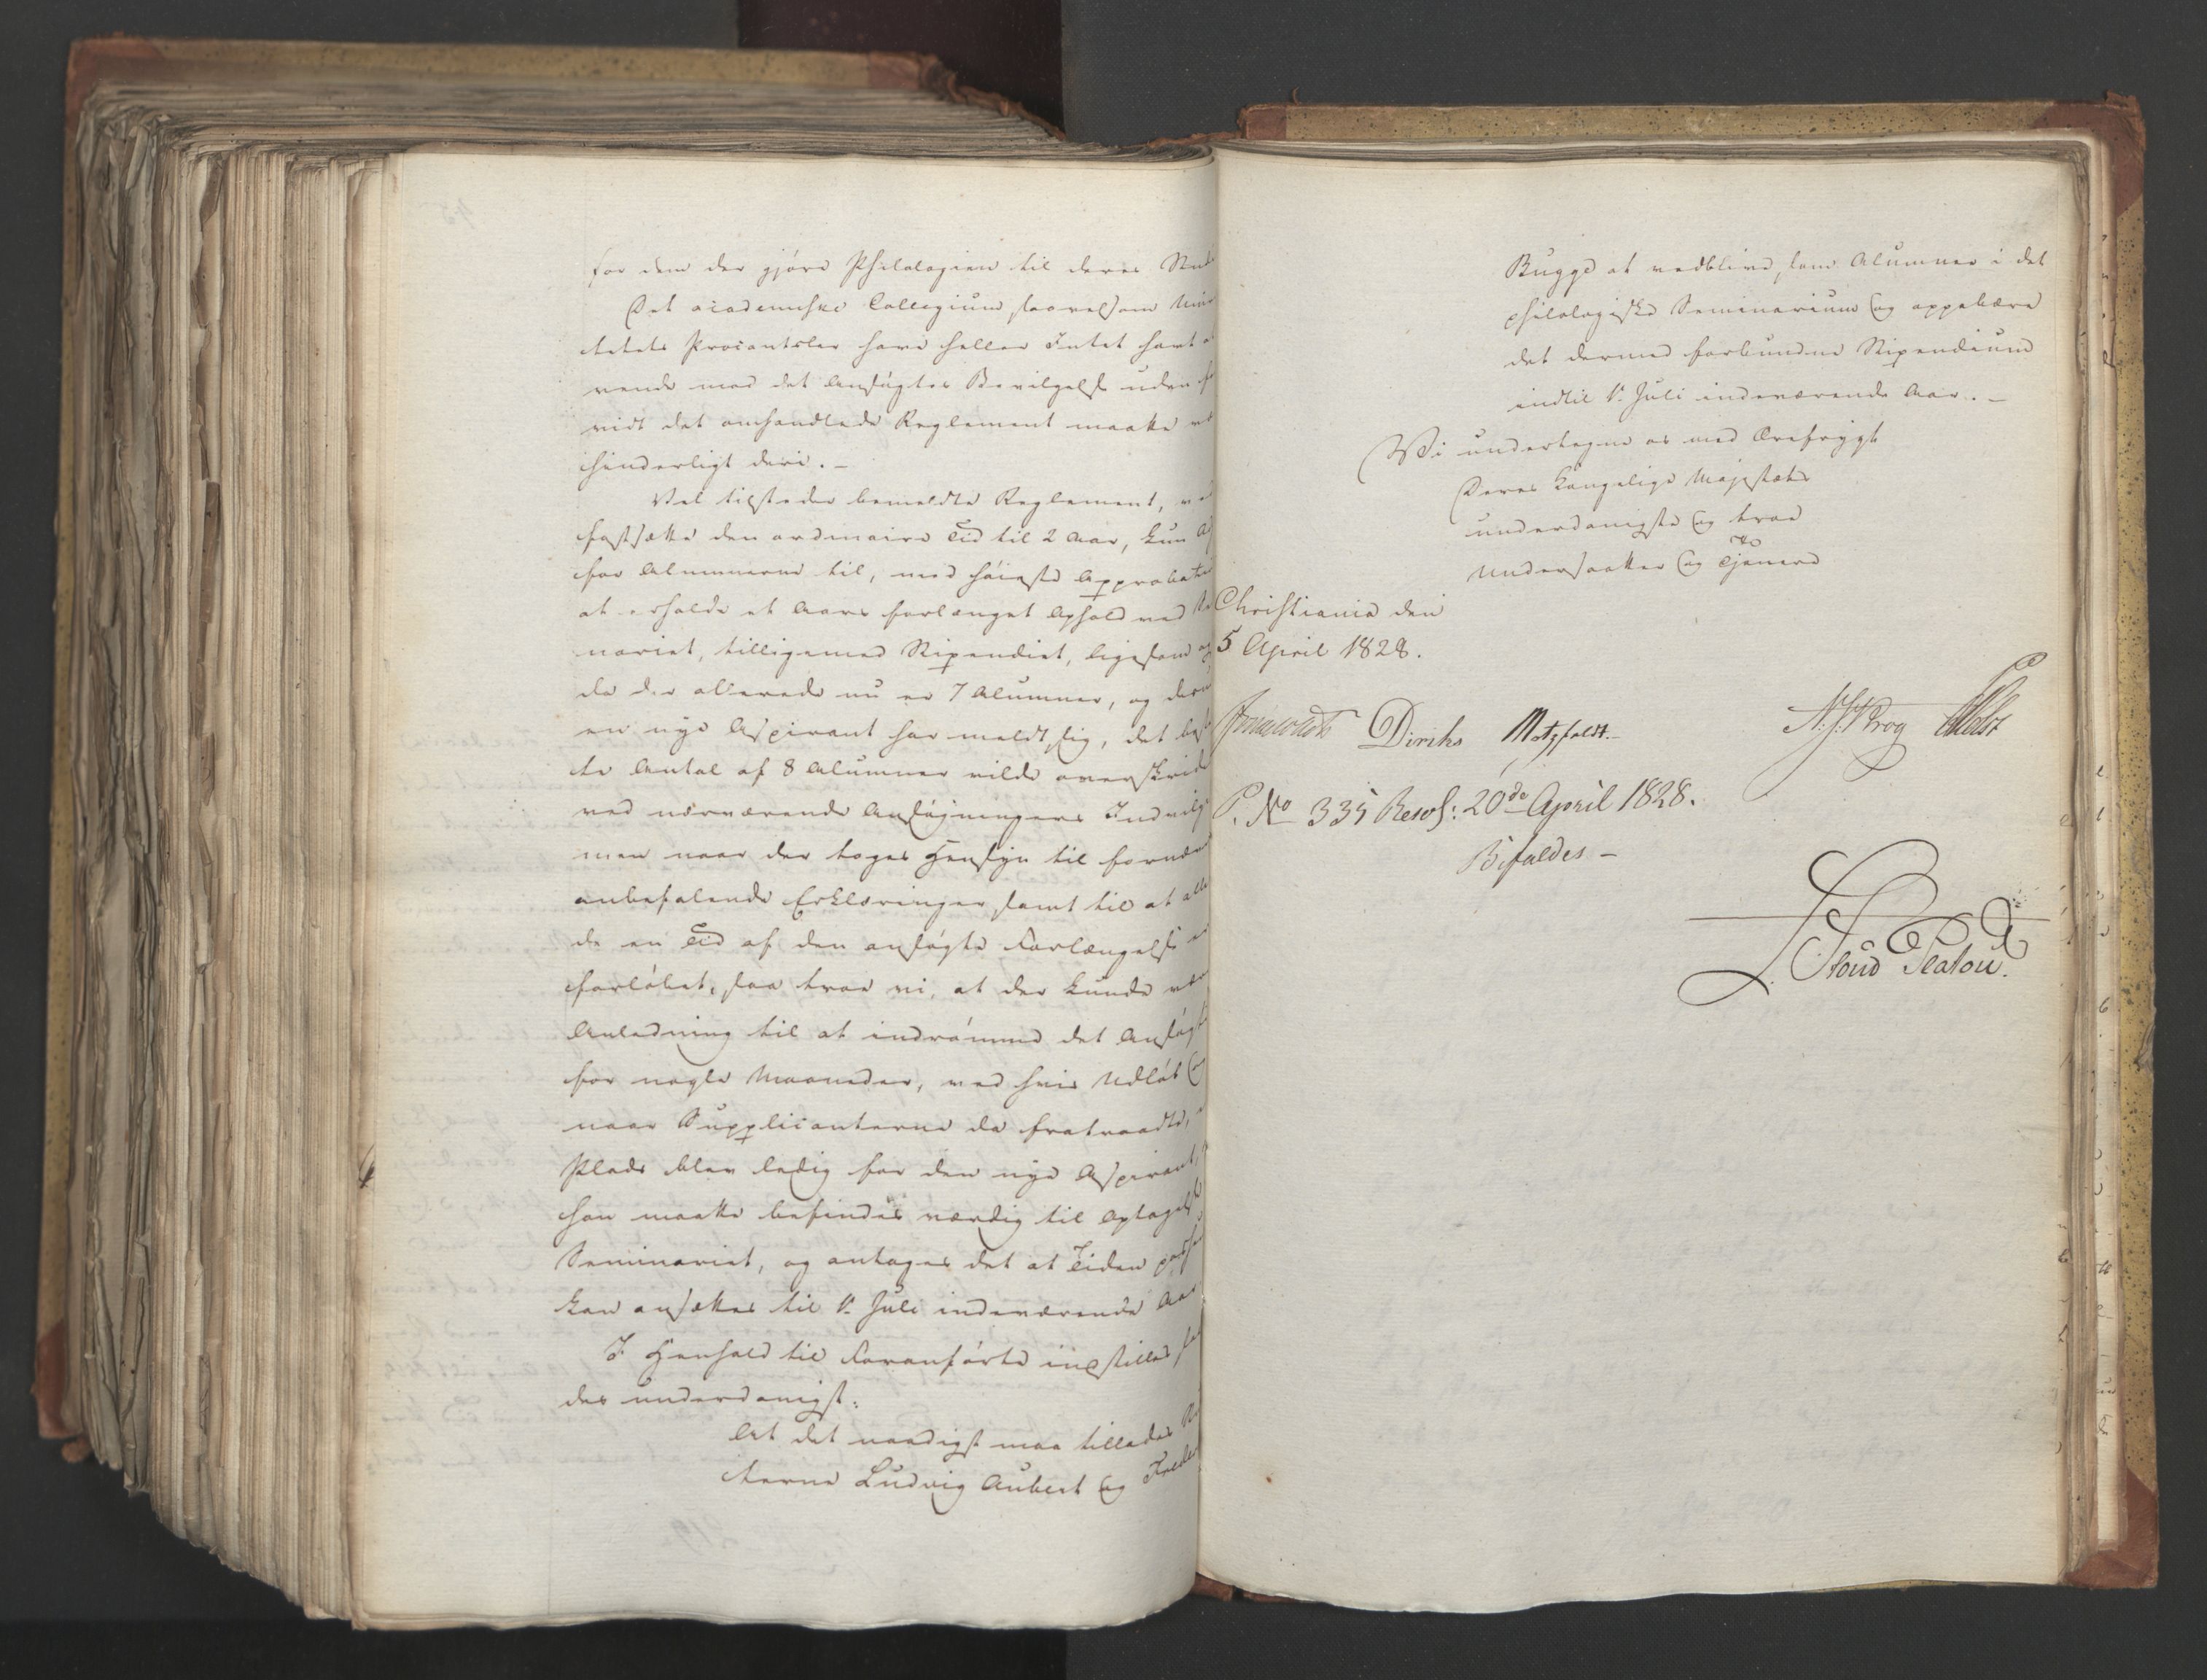 for dem der gjøre Philologien til deres
Det academiske Collegium saavelsom
tetets Procantsler have heller Intet havt
vende mod det Ansøgtes Bevilgelse uden
vidt det omhandlede Reglement maatte
hinderligt deri. –
Vel tilsteder bemeldte Reglement,
fastsætte den ordinaire Tid til 2 Aar, kun
for Alumnerne til, med høieste Approbation
at erholde et Aars forlænget Ophold ved
nariet, tilligemed Stipendiet, ligesom
da der allerede nu er 7 Alumner, og
en nye Aspirant har meldt sig, det
te Antal af 8 Alumner vilde overskrides
ved nærværende Ansøgningers
men naar der toges Hensyn til
anbefalende Erklæringer samt til at
de en Tid af den ansøgte Forlængelse
forløbet, saa troe vi, at der kunde
Anledning til at indrømme det
for nogle Maaneder, ved hvis Udløb
naar Supplicanterne da fratraadte,
Plads blev ledig for den nye Aspirant,
han maatte befindes værdig til
Seminariet, og antages det at Tiden
kan ansættes til 1. Juli indeværende
I Henhold til Foranførte indstilles
des underdanigst:
At det naadigst maa tillades
terne Ludvig Aubert og
Bugge at vedblive som Alumner i det
philologiske Seminarium og oppebære
det dermed forbundne Stipendium
indtil 1. Juli indeværende Aar. –
Vi undertegne os med Ærefrygt
Deres Kongelige Majestæts
underdanigste og troe
Undersaatter og Tjenere
Christiania den
5 April 1828.
Diriks Motzfeldt. N. J. Krog
P. No 335 Resol: 20de April 1828.
Bifaldes –